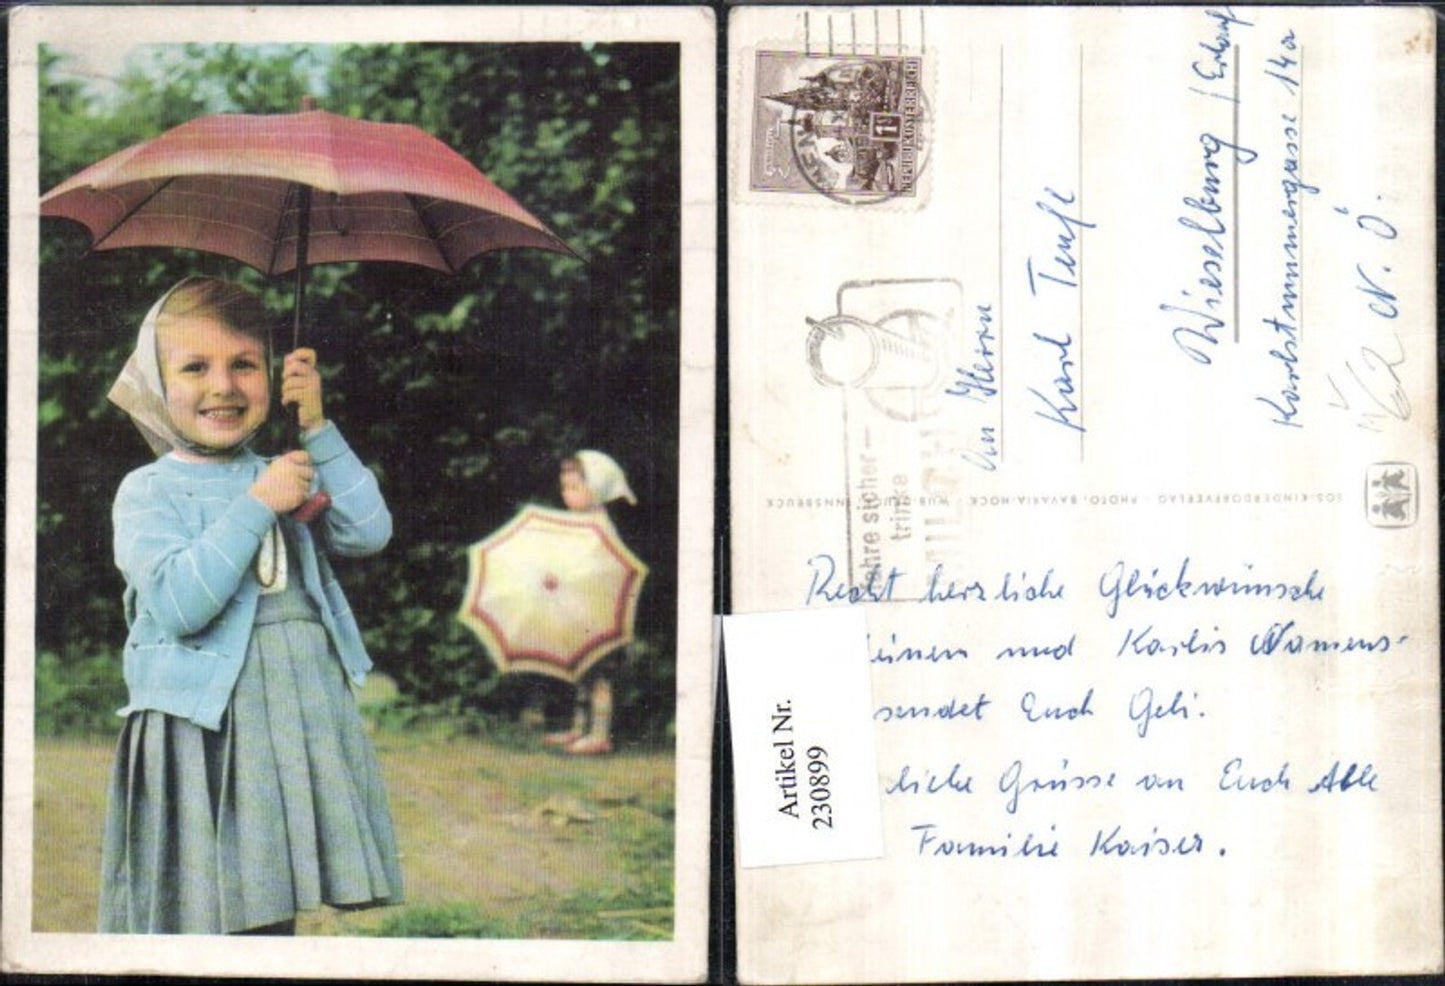 REPUBLIK ÖSTERREICH
1S
WIEN
Fahre sicher -
trinke
MILCH
An Herrn
Karl Teufl
Wieselburg / Erlauf
N.Ö.
SOS-KINDERDORFVERLAG · PHOTO: BAVARIA-HOCK INNSBRUCK
Recht herzliche Glückwünsche
einem und Karlis Namens-
sendet Euch Geli.
liche Grüsse an Euch Alle
Familie Kaiser.
Artikel Nr.
230899